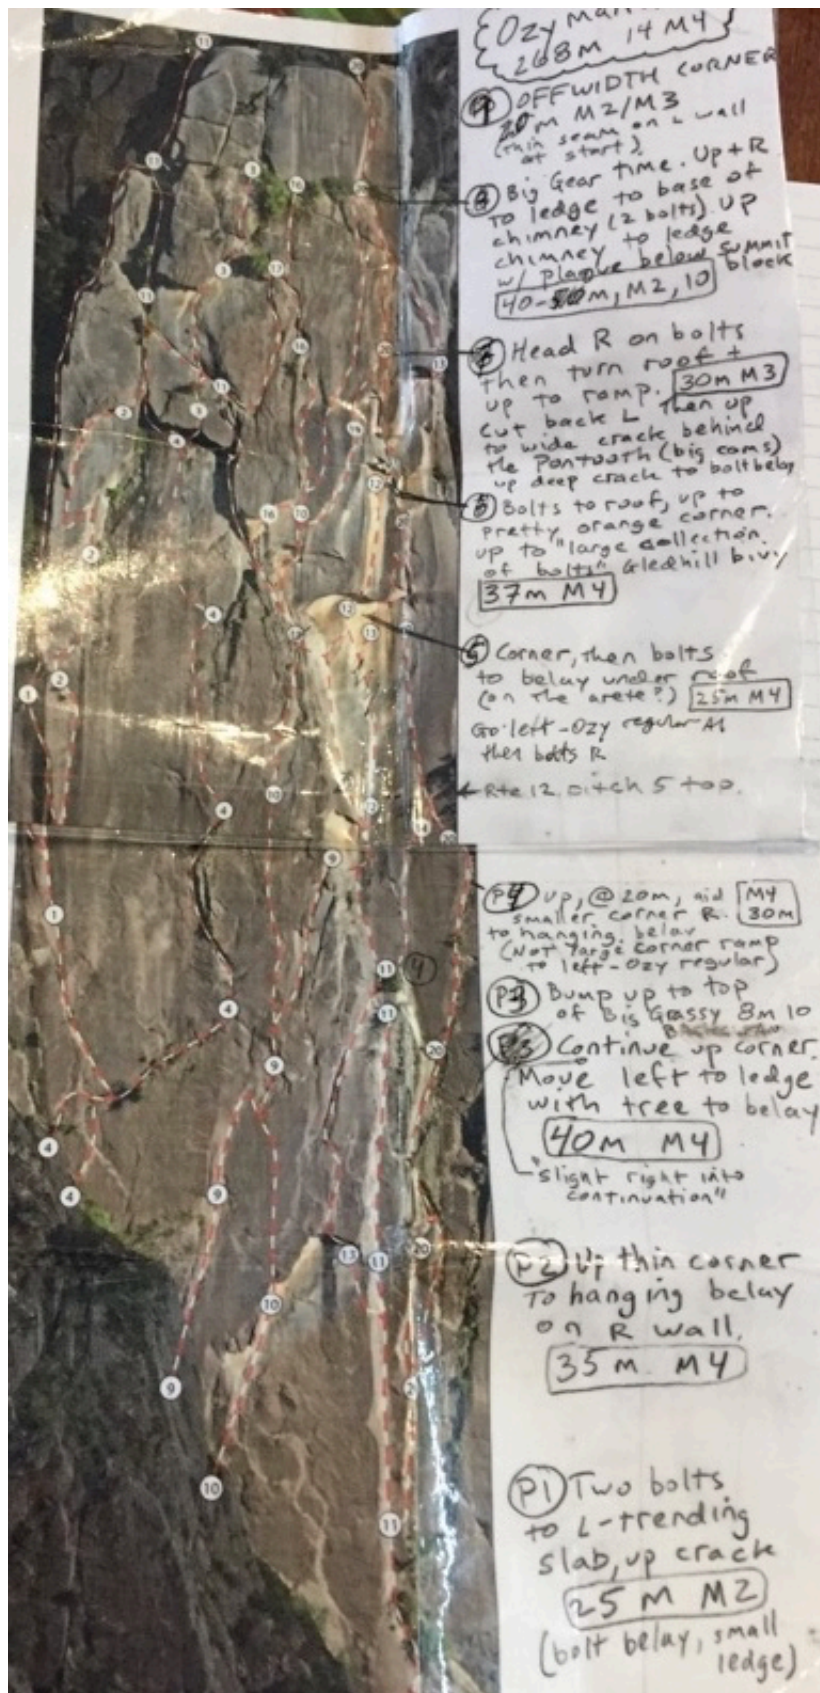 Ozy Man
268m 14 M4
9 OFFWIDTH CORNER
20m M2/M3
(thin seam on L wall
at start)
8 Big Gear time. Up + R
to ledge to base of
chimney (2 bolts) up
chimney to ledge
w/ plaque below summit
block
40-50m, M2, 10
Head R on bolts
then turn roof +
up to ramp. 30m M3
cut back L then up
to wide crack behind
the Pontooth (big cams)
up deep crack to bolt belay
6 Bolts to roof, up to
pretty orange corner.
up to "large collection
of bolts" Gledhill bivy
37m M4
5 Corner, then bolts
to belay under roof
(on the arete?) 25m M4
Go left - Ozy regular A1
then bolts R
← Rte 12 pitch 5 top.
P4 up, @ 20m, aid M4
smaller corner R. 30m
to hanging belay
(NOT large corner ramp
to left - Ozy regular)
P3 Bump up to top
of Big Grassy 8m 10
P3 Continue up corner.
Move left to ledge
with tree to belay
40m M4
"slight right into
continuation"
P2 Up thin corner
to hanging belay
on R wall.
35m M4
P1 Two bolts
to L-trending
slab, up crack
25 m M2
(bolt belay, small
ledge)